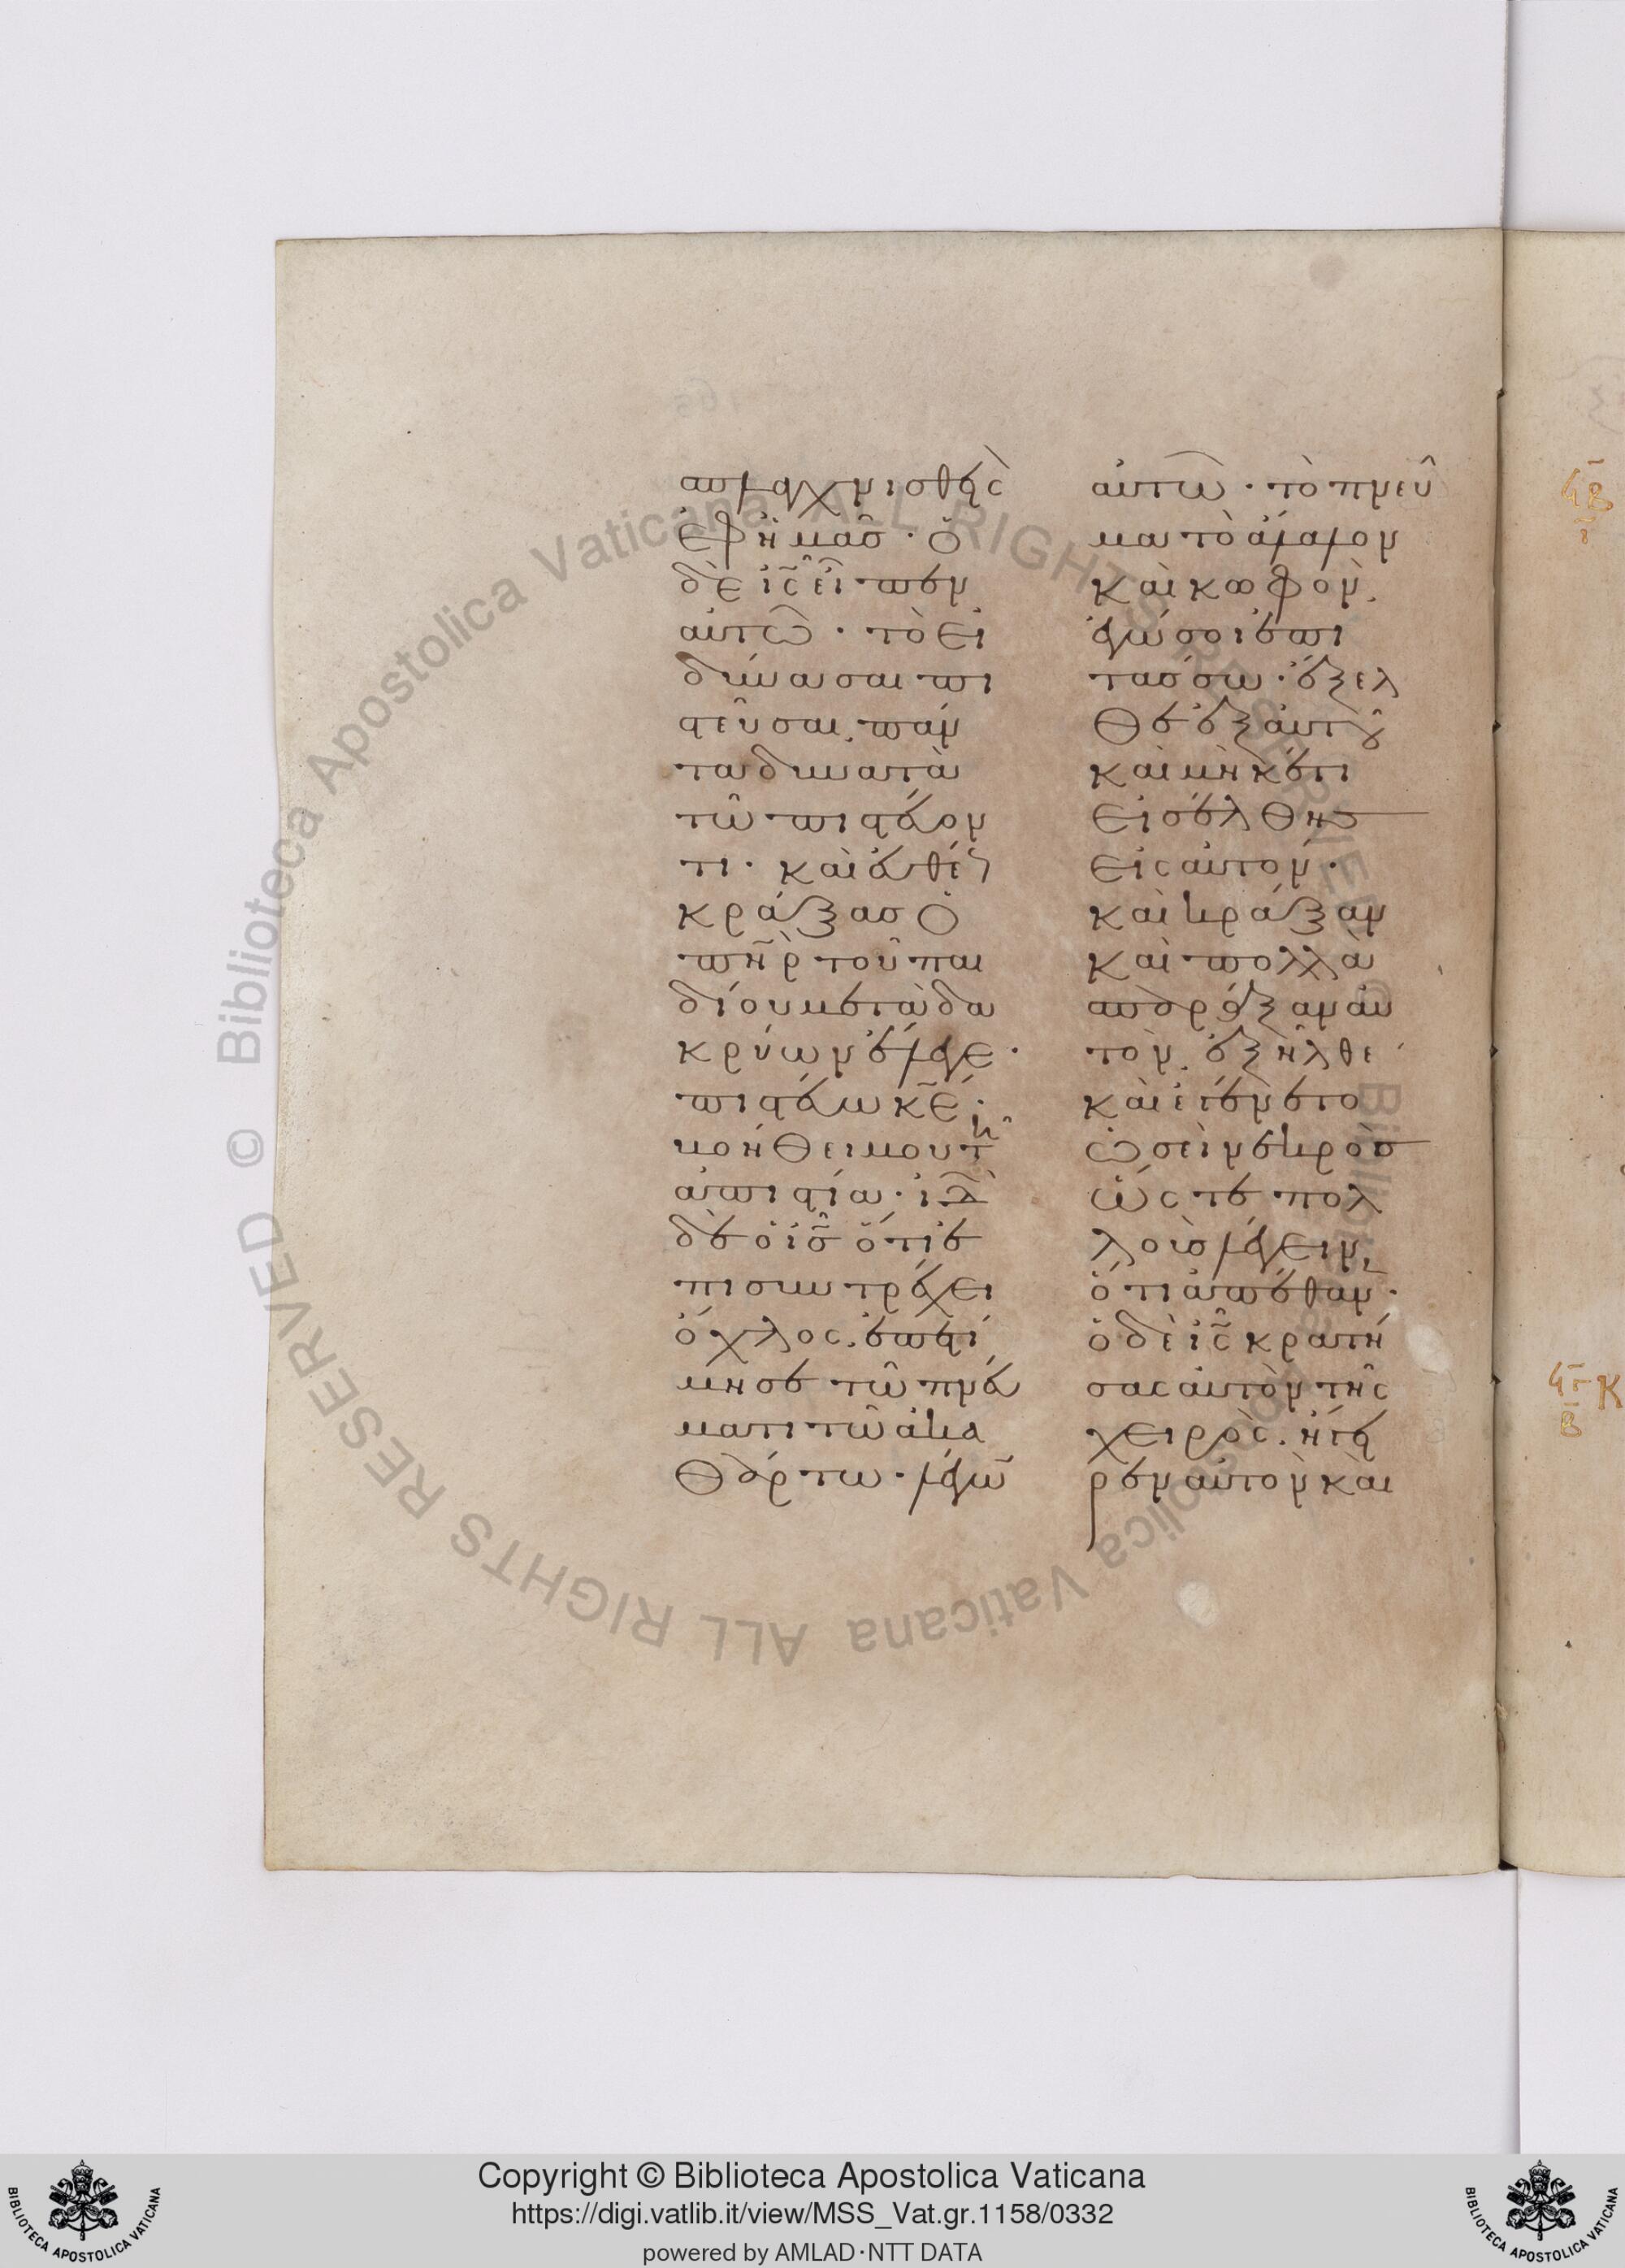 σπλαγχνισθεὶς
ἐφ ἡμᾶσ · ὁ
δὲ ις εἶπεν
αὐτῶ · τὸ εἰ
δύνασαι πι
στεῦσαι, πάν
τα δυνατὰ
τῶ πιστεύον
τι · καὶ εὐθέως
κράξασ ὁ
πηρ τοῦ παι
δίου μετὰ δα
κρύων ἔλεγε ·
πιστεύω κε ·
βοήθει μου τῆ
ἀπιστία · ἰδὼν
δὲ ὁ ις ὅτι ἐ
πισυντρέχει
ὄχλος, ἐπετί
μησε τῶ πνεύ
ματι τῶ ἀκα
θάρτω · λέγων
αὐτῶ · τὸ πνεῦ
μα τὸ ἄλαλον
καὶ κωφὸν,
ἐγώ σοι ἐπι
τάσσω · ἔξελ
θε ἐξ αὐτοῦ
καὶ μηκέτι
εἰσέλθησ
εἰς αὐτόν ·
καὶ κράξαν
καὶ πολλὰ
σπαράξαν αὐ
τὸν, ἐξῆλθε
καὶ ἐγένετο
ὡσεὶ νεκρὸσ
ὥς τε πολ
λοὺσ λέγειν,
ὅτι ἀπέθανεν ·
ὁ δὲ ις κρατή
σας αὐτὸν τῆς
χειρὸς, ἤγει
ρεν αὐτὸν καὶ
Copyright © Biblioteca Apostolica Vaticana
https://digi.vatlib.it/view/MSS_Vat.gr.1158/0332
powered by AMLAD·NTT DATA